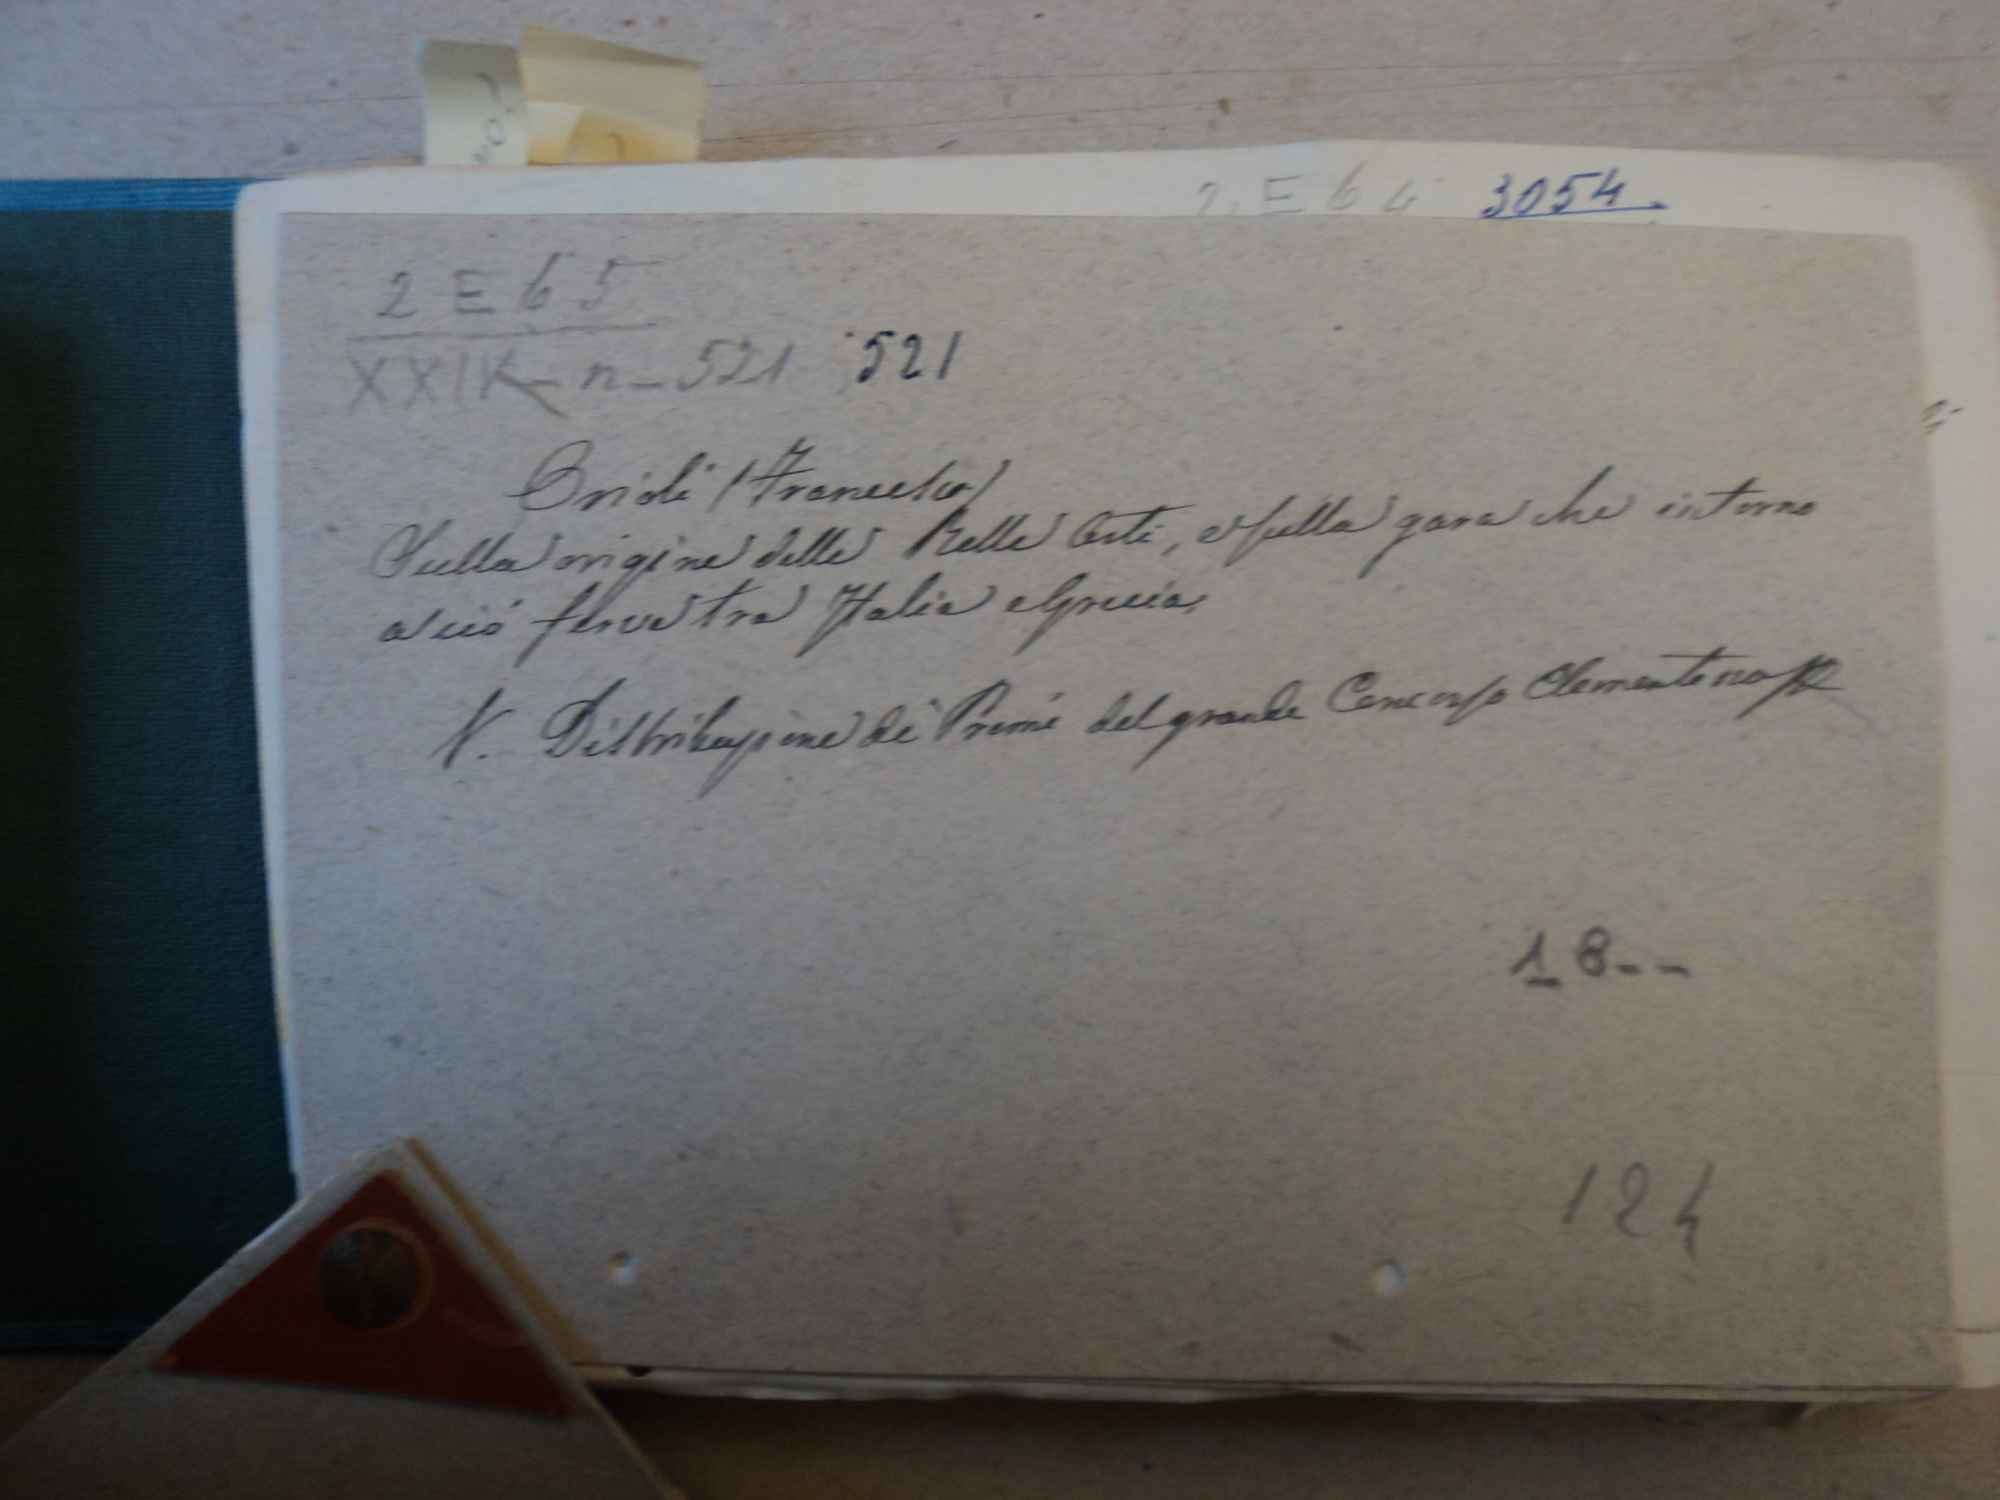 2 E 6 6 3054.
2 E 6 5
XXIX - n - 521 521
Orioli (Francesco)
Sulla origine delle Belle Arti, e sulla gara che intorno
a ciò ferve tra Italia e Grecia.
V. Distribuzione dè Premi del grande Concorso Clementino
18--
124